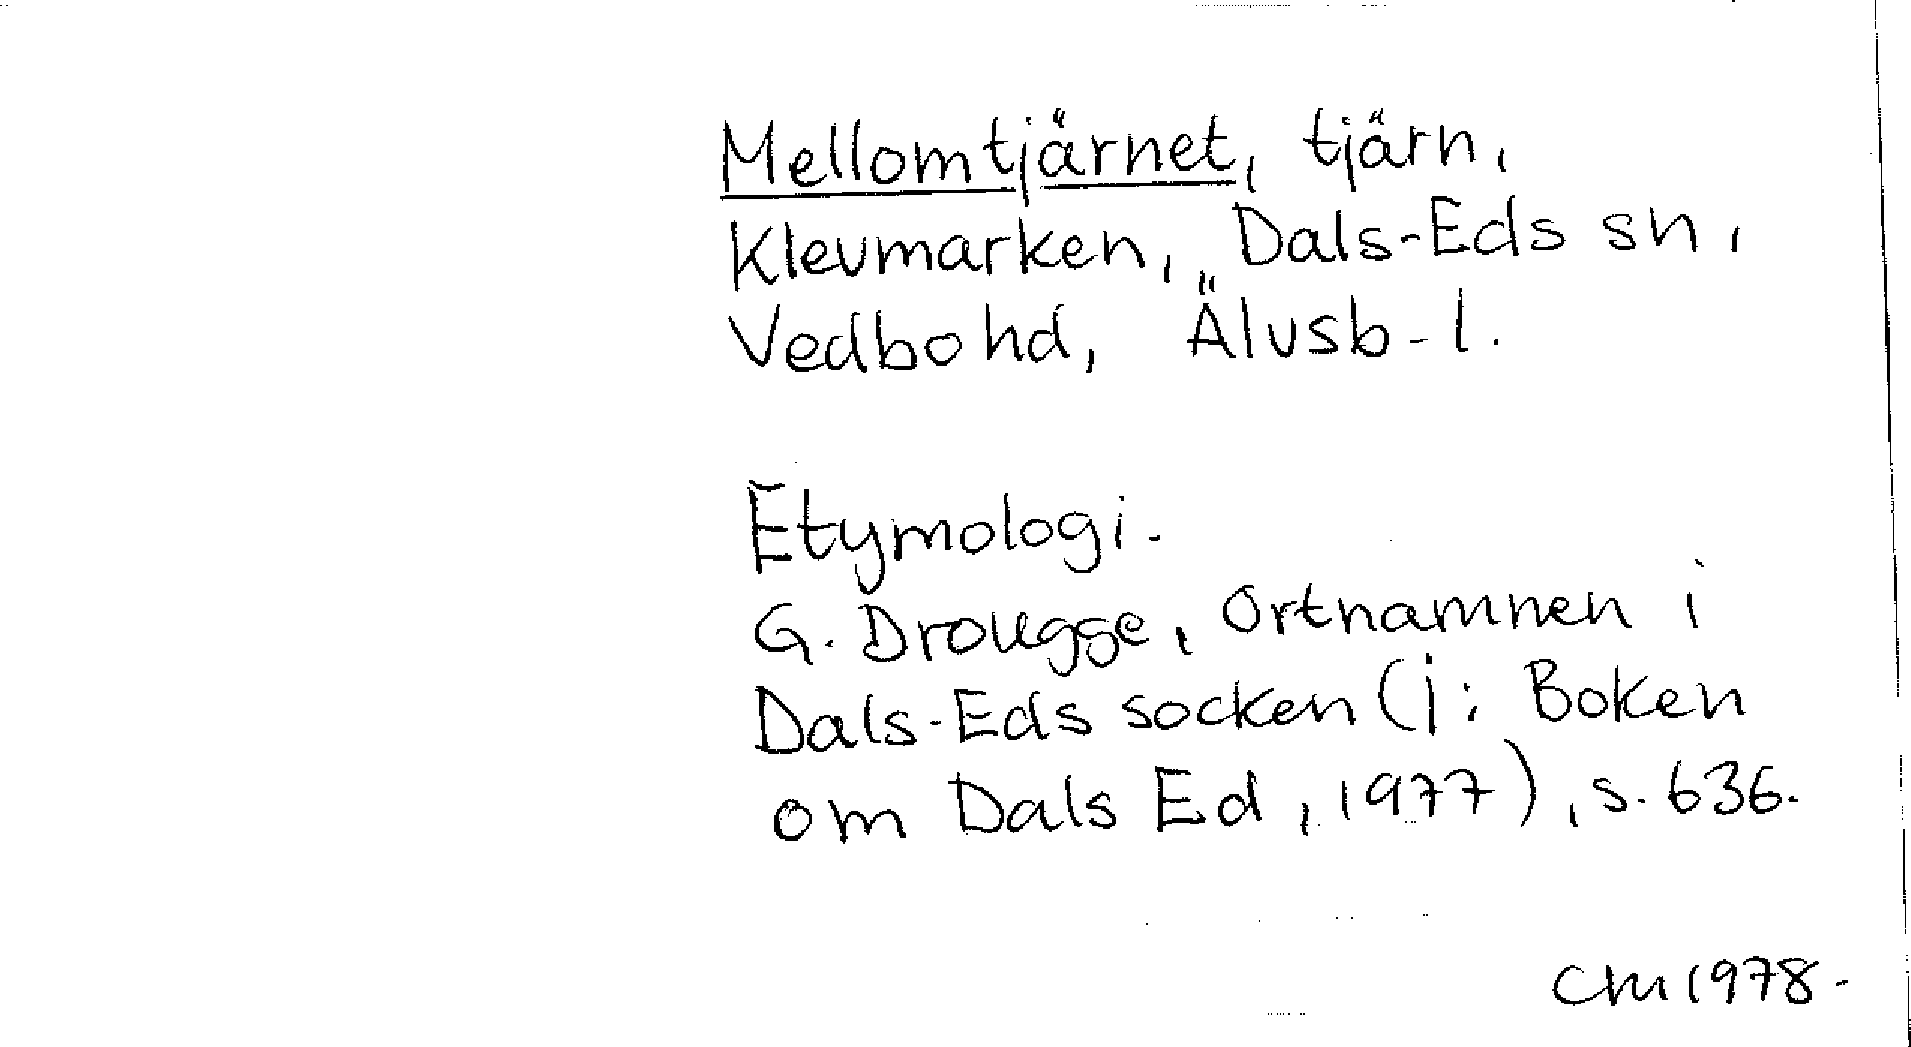 Mellomtjärnet, tjärn,
Klevmarken, Dals-Eds sn,
Vedbo hd, Älvsb-l.
Etymologi.
G. Drougge, Ortnamnen i
Dals-Eds socken (i: Boken
om Dals Ed, 1977), s. 636.
CM 1978.